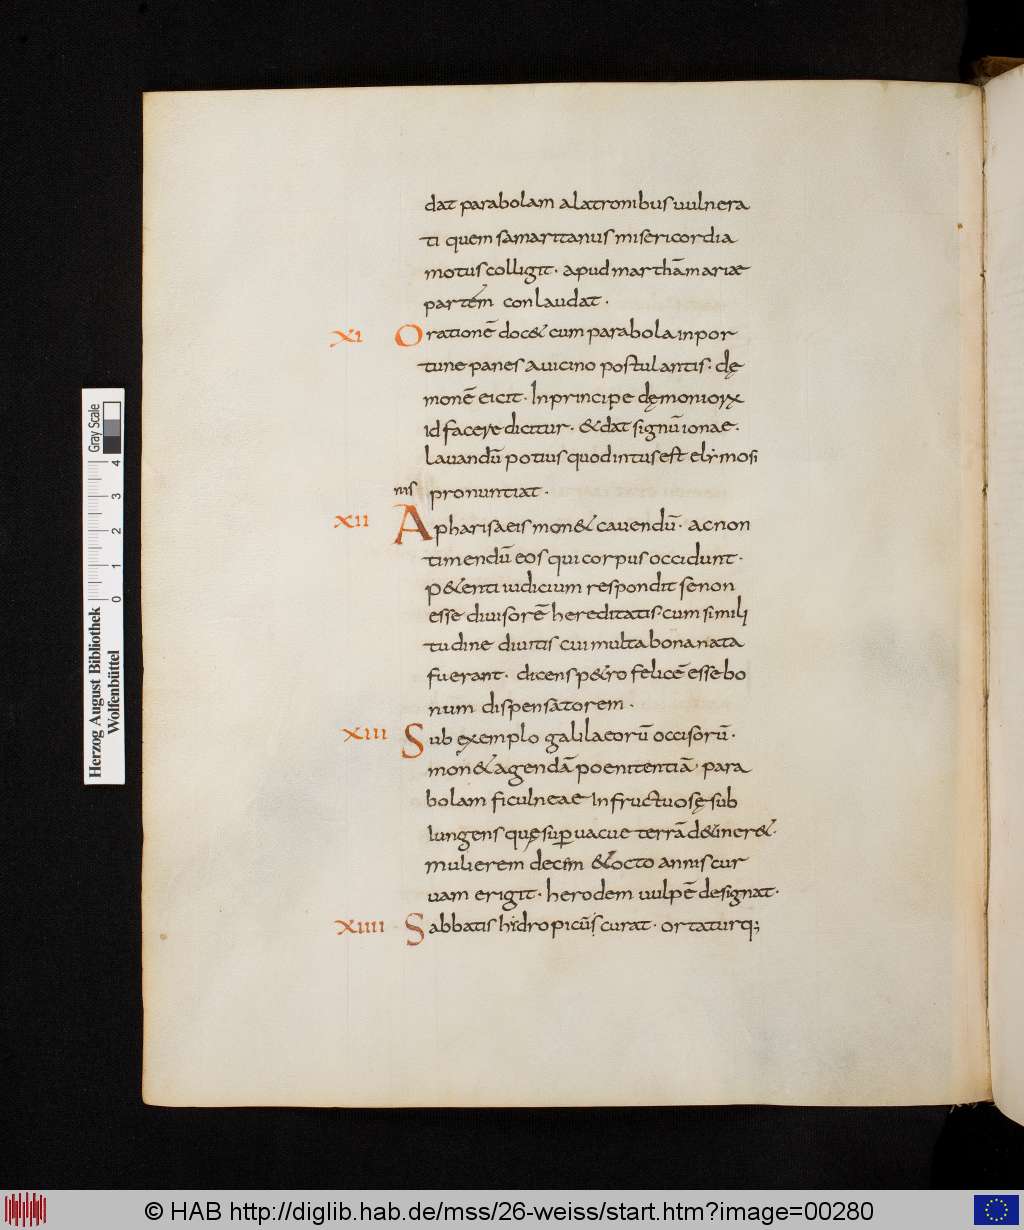 dat parabolam a latronibus uulnera
ti quem samaritanus misericordia
motus colligit · apud marthā mariae
partem conlaudat ·
XI Orationē doc& cum parabola inpor
tune panes a uicino postulantis · dę
monē eicit · In principe dęmoniorx
id facere dicitur · & dat signū ionae ·
Lauandū potius quod intus est elymosi
nis pronuntiat ·
XII A pharisaeis mon& cauendū · ac non
timendū eos qui corpus occidunt ·
P&enti iudicium respondit se non
esse diuisorē hereditatis · cum simili
tudine diuitis cui multa bona nata
fuerant · dicens p&ro felicē esse bo
num dispensatorem ·
XIII Sub exemplo galilaeorū occisorū ·
mon& agendā poenitentiā · para
bolam ficulneae Infructuosę sub
iungens quę sup uacue terrā d&iner& ·
mulierem decim & octo annis cur
uam erigit · herodem uulpē designat ·
XIIII Sabbatis hidropicūs curat · ortaturq;
Herzog August Bibliothek
Wolfenbüttel
0 1 2 3 4
Gray Scale
© HAB http://diglib.hab.de/mss/26-weiss/start.htm?image=00280